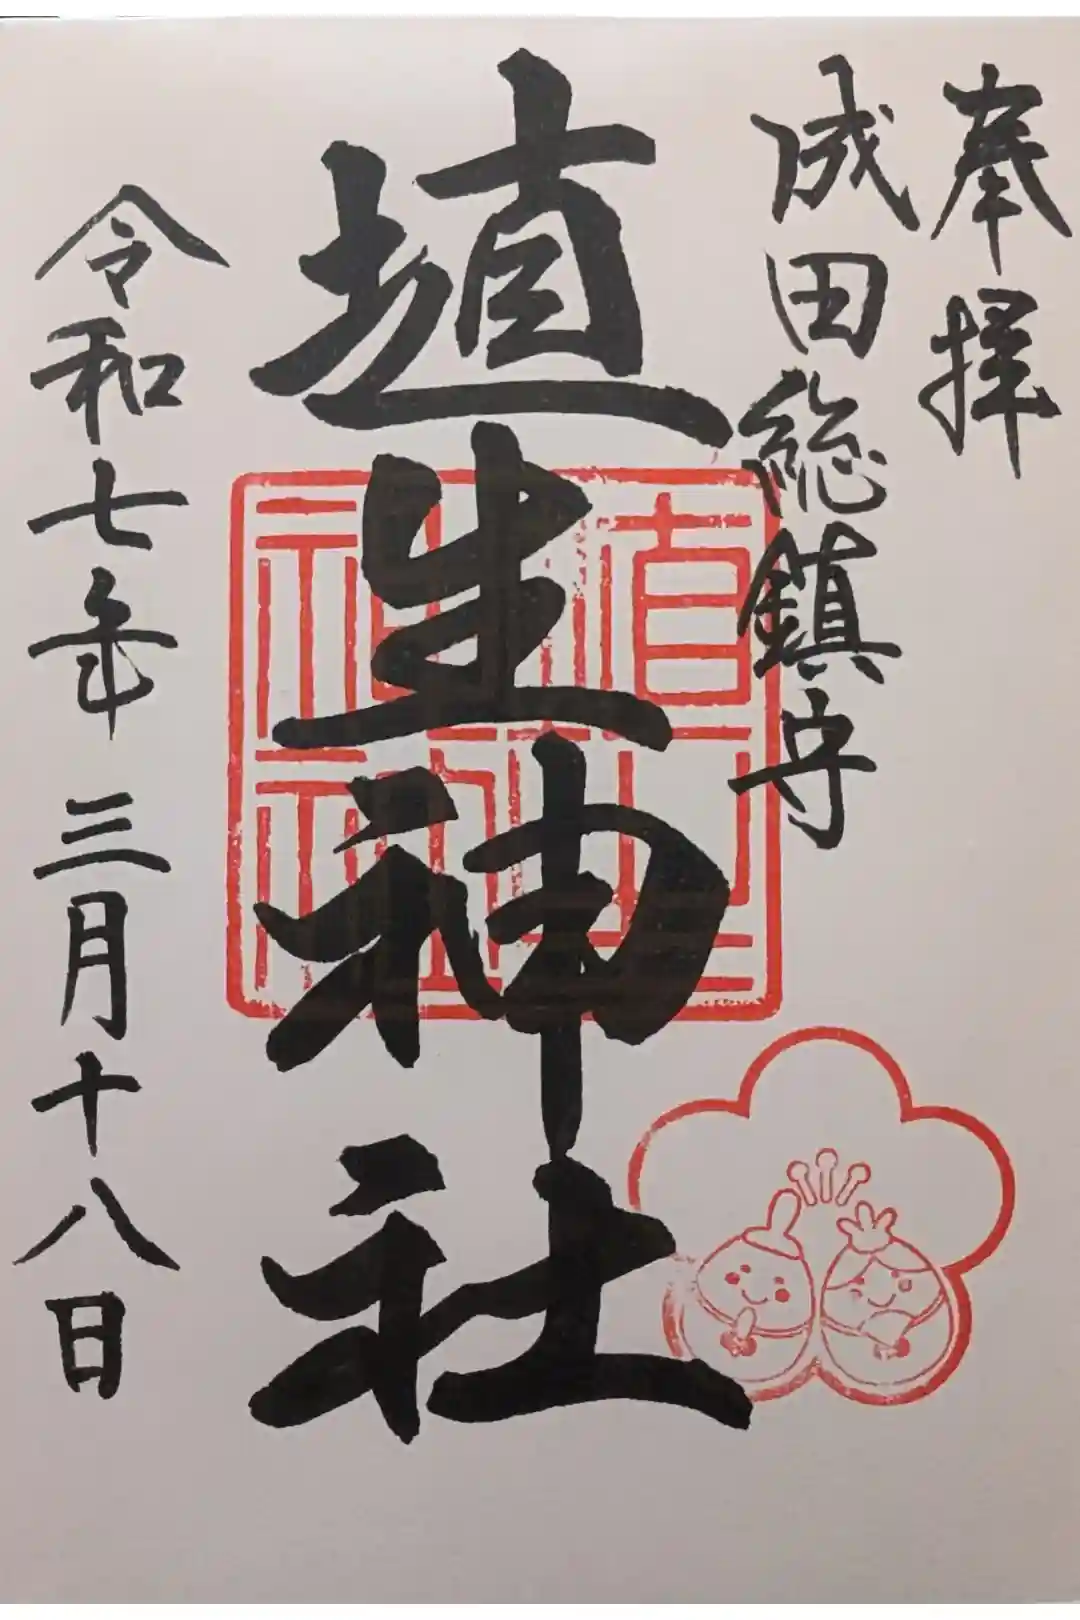 奉拝
成田総鎮守
埴生神社
埴生神社
令和七年三月十八日